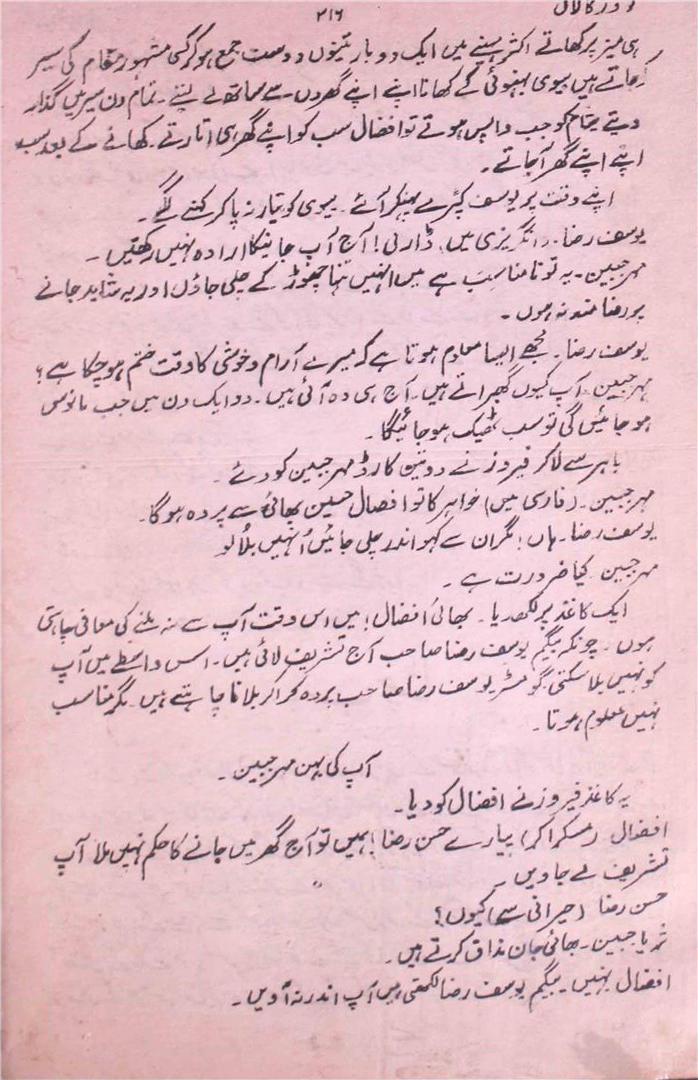 ۲۱۶
ہی میز پر کھاتے اکثر مہینے میں ایک دو بار تینوں دوست جمع ہو کر کسی مشہور مقام کی سیر
کو جاتے ہیں بیوی بہنوئی کے کھانا اپنے اپنے گھروں سے ساتھ لے لیتے۔ تمام دن سیر میں گذار
دیتے شام کو جب واپس ہوتے تو افضال سب کو اپنے گھر ہی اتارتے۔ کھانے کے بعد سب
اپنے اپنے گھر آجاتے۔
اپنے وقت پر یوسف کپڑے پہنکر آئے۔ بیوی کو تیار نہ پا کر کہنے لگے۔
یوسف رضا۔ (انگریزی میں) ڈارلی! آج آپ جانیکا ارادہ نہیں رکھتیں۔
مہرجبین۔ یہ تو نامناسب ہے میں انہیں تنہا چھوڑ کے چلی جاؤں اور یہ شاید جانے
پر رضامند نہ ہوں۔
یوسف رضا۔ مجھے ایسا معلوم ہوتا ہے کہ میرے آرام و خوشی کا وقت ختم ہو چکا ہے؟
مہرجبین۔ آپ کیوں گھبراتے ہیں۔ آج ہی وہ آئی ہیں۔ دو ایک دن میں جب مانوس
ہو جائیں گی تو سب ٹھیک ہو جائیگا۔
باہر سے لا کر فیروز نے دو نیو کارڈ مہرجبین کو دئے۔
مہرجبین۔ (فارسی میں) خواہر کا تو افضال حسین بھائی سے پردہ ہوگا۔
یوسف رضا۔ ہاں! مگر ان سے کہو اندر چلی جائیں اُنہیں بلا لو
مہرجبین۔ کیا ضرورت ہے۔
ایک کاغذ پر لکھدیا۔ بھائی افضال! میں اس وقت آپ سے نہ ملنے کی معافی چاہتی
ہوں۔ چونکہ بیگم یوسف رضا صاحب آج تشریف لائی ہیں۔ اس واسطے میں آپ
کو نہیں بلا سکتی۔ گو مسٹر یوسف رضا صاحب پردہ کرا کر بلانا چاہتے ہیں۔ مگر مناسب
نہیں معلوم ہوتا۔
آپ کی بہن مہرجبین۔
یہ کاغذ فیروز نے افضال کو دیا۔
افضال (مسکرا کر) پیارے حسن رضا! ہمیں تو آج گھر میں جانے کا حکم نہیں ملا آپ
تشریف لے جاویں۔
حسن رضا (حیرانی سے) کیوں؟
ثریا جبین۔ بھائی جان مذاق کرتے ہیں۔
افضال نہیں۔ بیگم یوسف رضا لکھتی ہیں آپ اندر نہ آویں۔